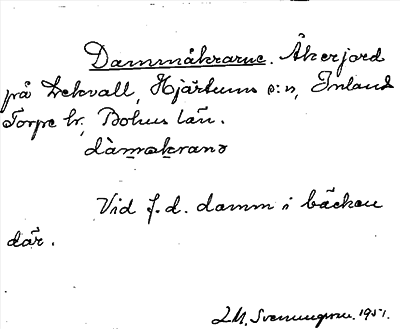 Dammåkrarne. Åkerjord
på Lekvall, Hjärtums s:n, Inlands
Torpe hr, Bohus län.
dàm̱a̱kra̱nə
Vid f.d. damm i bäcken
där.
1951.